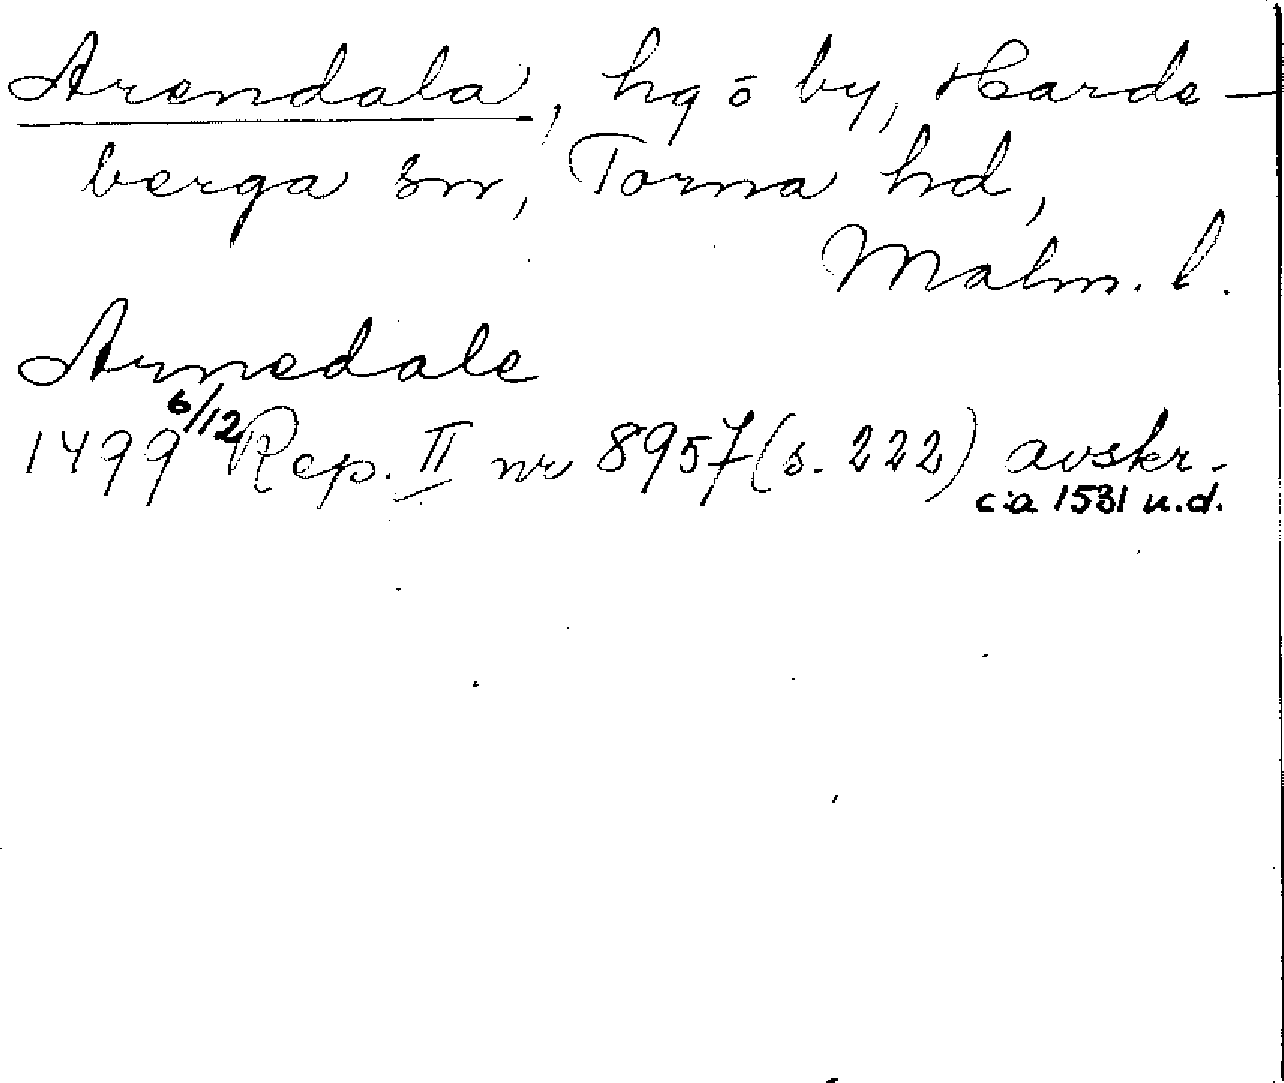 Arendala, hg ō by, Harde-
berga sn, Torna hd,
Malm. l.
Arnedale
1499 6/12 Rep. II nr 8957 (s. 222) avskr.
ca 1531 u.d.